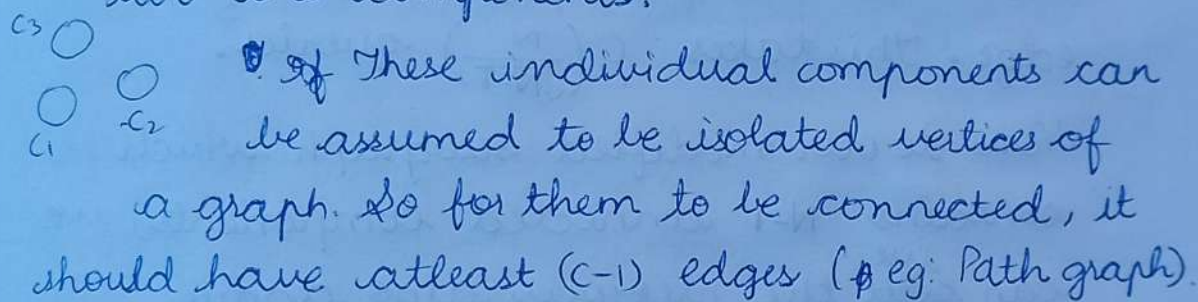 components.
C3
These individual components can
C1 C2
be assumed to be isolated vertices of
a graph. So for them to be connected, it
should have atleast (C-1) edges (eg: Path graph)